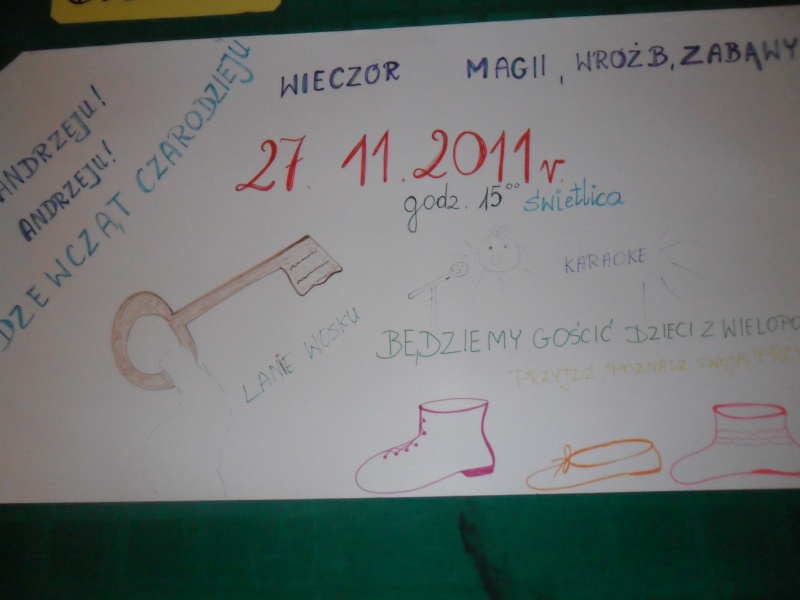 ANDRZEJU!
ANDRZEJU!
DZEWCZĄT CZARODZIEJU
WIECZÓR MAGII, WRÓŻB, ZABAWY
27.11.2011r.
godz. 15⁰⁰ świetlica
KARAOKE
LANIE WOSKU
BĘDZIEMY GOŚCIĆ DZIECI Z WIELOPO
PRZYJDŹ POZNASZ SWOJĄ PRZY